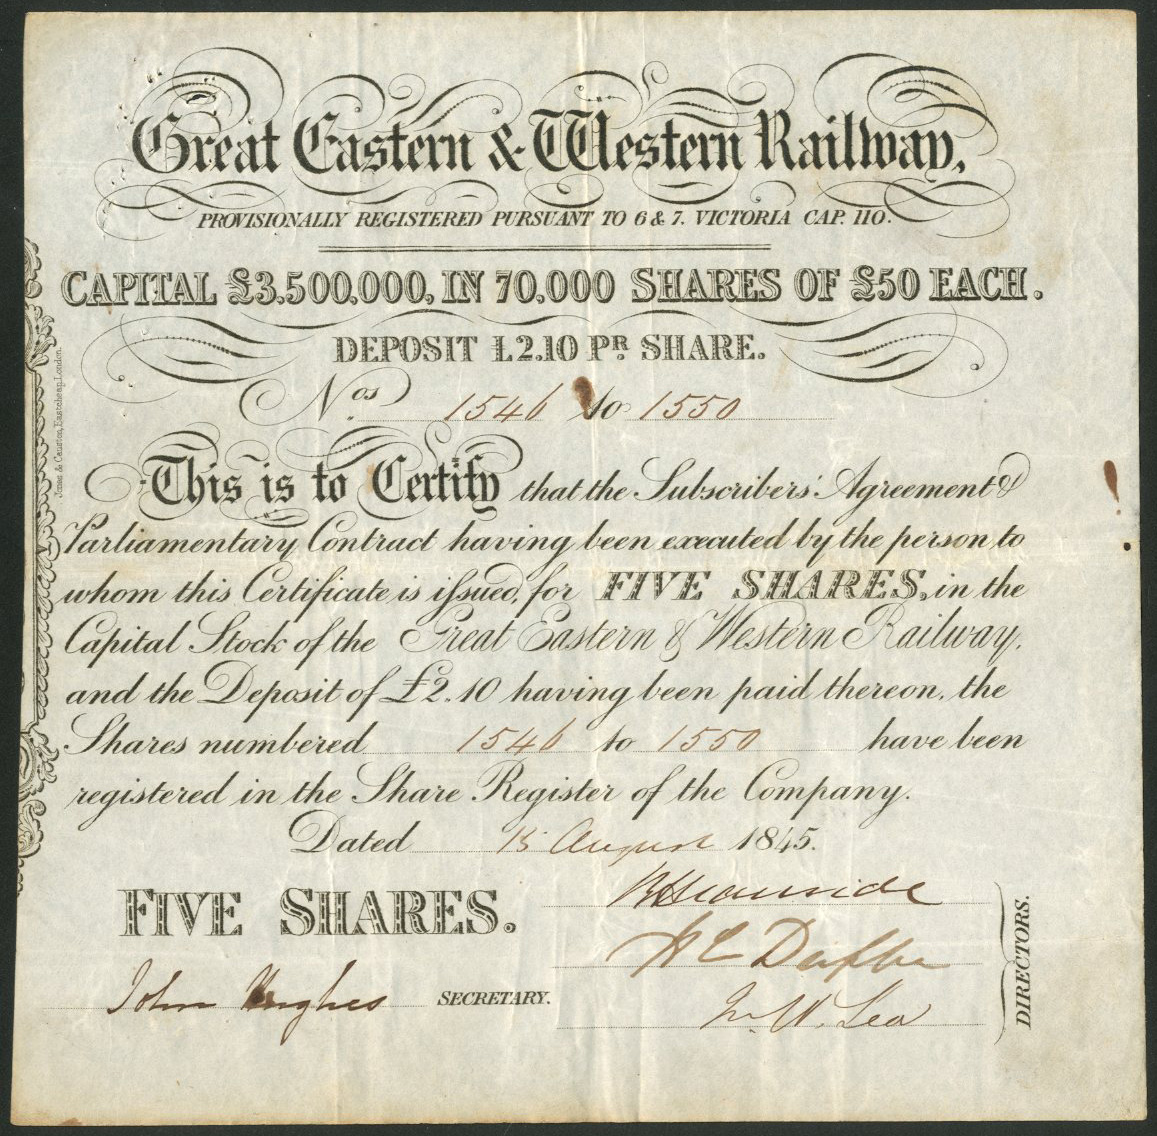 Great Eastern & Western Railway,
PROVISIONALLY REGISTERED PURSUANT TO 6 & 7. VICTORIA CAP. 110.
CAPITAL £3.500,000, IN 70,000 SHARES OF £50 EACH.
DEPOSIT £2.10 PR. SHARE.
Nos 1546 to 1550
This is to Certify that the Subscribers' Agreement &
Parliamentary Contract having been executed by the person to
whom this Certificate is issued, for FIVE SHARES, in the
Capital Stock of the Great Eastern & Western Railway,
and the Deposit of £2.10 having been paid thereon, the
Shares numbered 1546 to 1550 have been
registered in the Share Register of the Company.
Dated 15 August 1845.
FIVE SHARES.
John Hughes SECRETARY.
W. Lea
DIRECTORS.
Jones & Causton, Eastcheap, London.